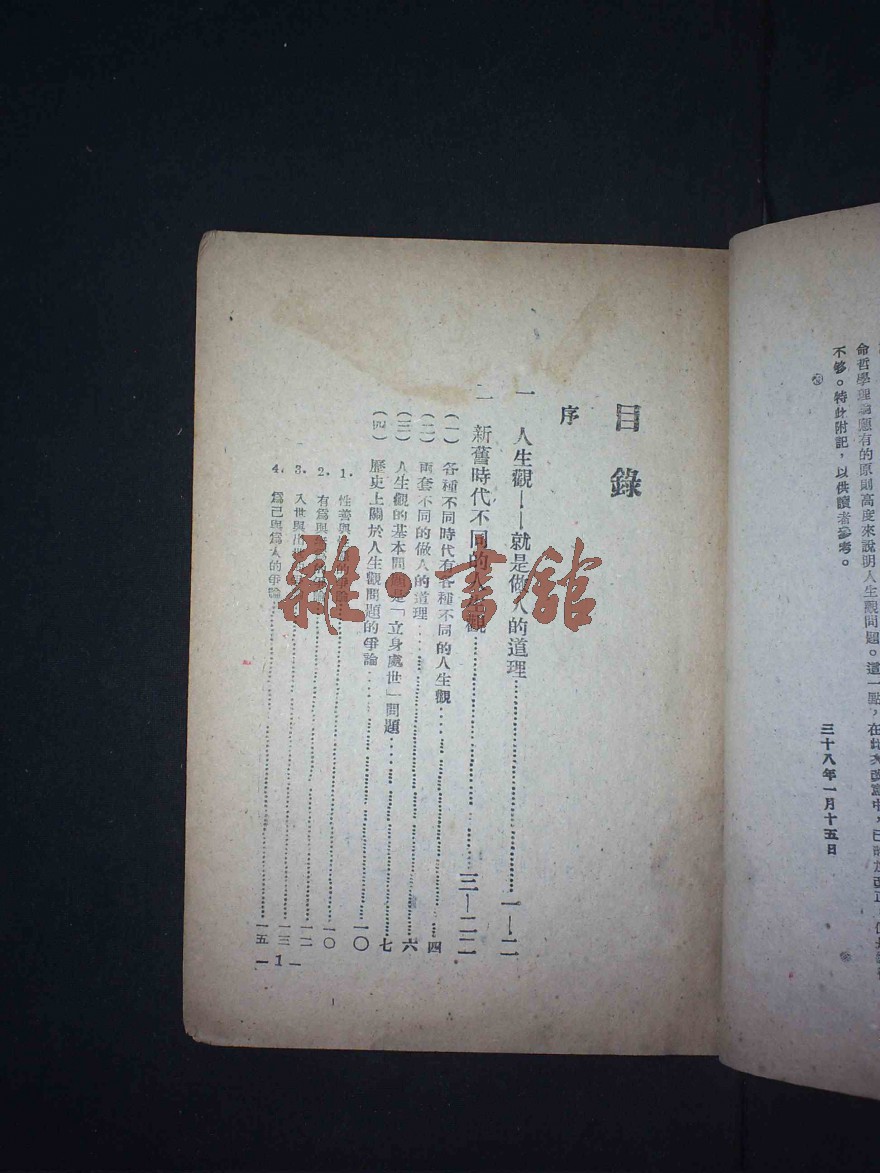 命哲學理論應有的原則高度來說明人生觀問題。這一點,在
不够。特此附記,以供讀者參考。
三十八年一月十五日
目錄
序
一 人生觀——就是做人的道理……一—二
二 新舊時代不同的人生觀……三—二二
(一)各種不同時代有各種不同的人生觀……四
(二)兩套不同的做人的道理……六
(三)人生觀的基本問題是「立身處世」問題……七
(四)歷史上關於人生觀問題的爭論……一〇
1. 性善與……一〇
2. 有為與……一二
3. 入世與出世……一三
4. 為己與為人的爭論……一五
—1—
雜·書館